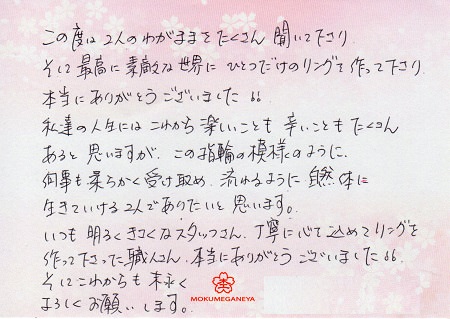 この度は2人のわがままをたくさん聞いて下さり
そして最高に素敵な世界にひとつだけのリングを作って下さり
本当にありがとうございました。
私達の人生にはこれから楽しいことも辛いこともたくさん
あると思いますが、この指輪の模様のように、
何事も柔らかく受け取め、流れるように自然体に
生きていける2人でありたいと思います。
いつも明るくきさくなスタッフさん、丁寧に心を込めてリングを
作って下さった職人さん、本当にありがとうございました。
そしてこれからも末永く
よろしくお願いします。
MOKUMEGANEYA